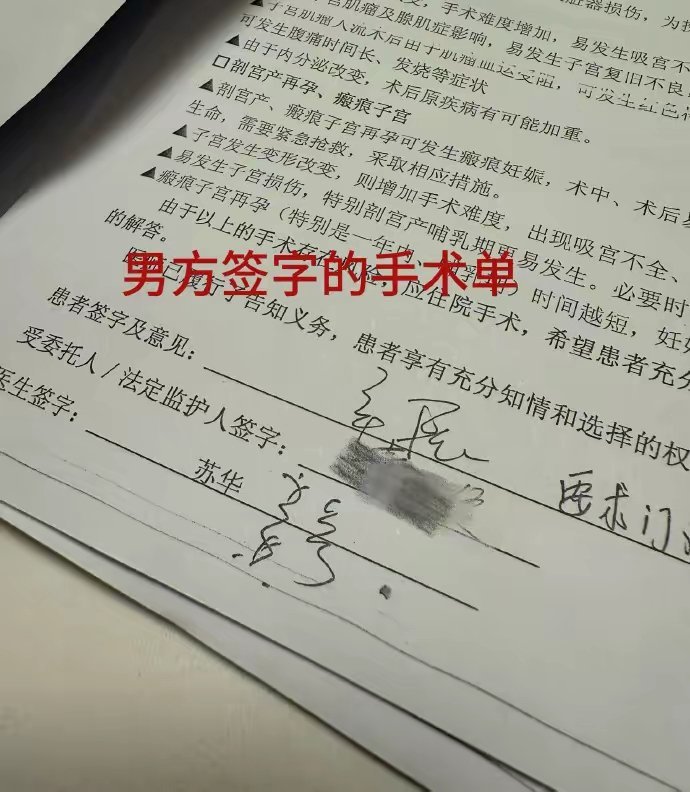 脏器损伤，为
，手术难度增加，易发生吸宫不
宫肌瘤及腺肌症影响，易发生子宫复旧不良
▲子宫肌瘤人流术后由于肌瘤血运受阻，可发生红色
可发生腹痛时间长、发烧等症状
▲由于内分泌改变，术后原疾病有可能加重。
□剖宫产再孕、瘢痕子宫
▲剖宫产、瘢痕子宫再孕可发生瘢痕妊娠，术中、术后
生命，需要紧急抢救，采取相应措施。
▲子宫发生变形改变，则增加手术难度，出现吸宫不全、
▲易发生子宫损伤，特别剖宫产哺乳期更易发生。必要时
▲瘢痕子宫再孕（特别是一年内、时间越短，妊
由于以上的手术存在风险，应住院手术，希望患者充
的解答。
男方签字的手术单
已履行了告知义务，患者享有充分知情和选择的权
患者签字及意见：
要求门
受委托人/法定监护人签字：
医生签字：
苏华